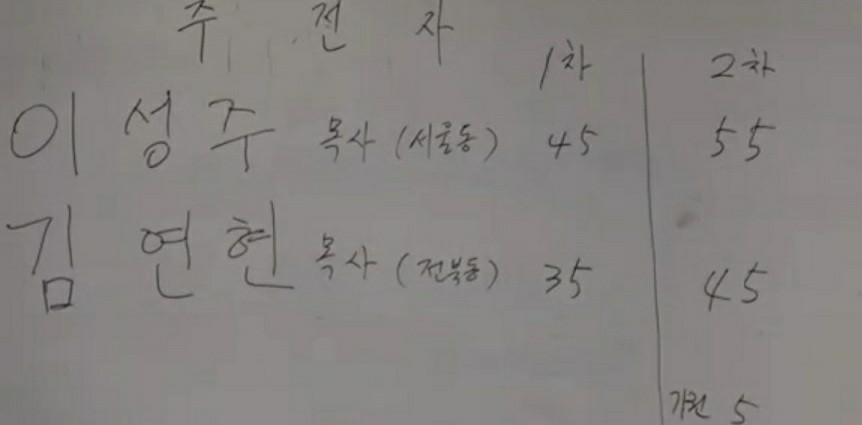 주 전 자
1차 2차
이성주 목사 (서울동) 45 55
김연현 목사 (전북동) 35 45
기권 5